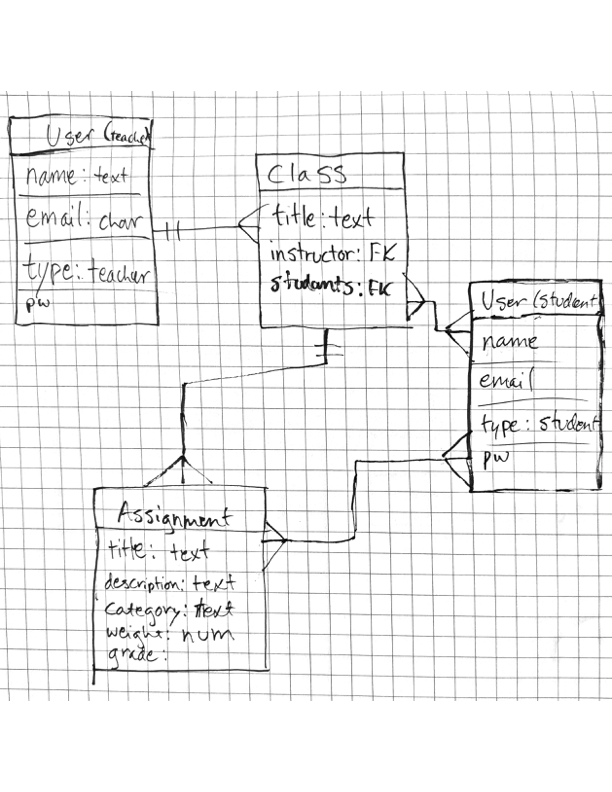 User (teacher)
name: text
email: char
type: teacher
pw
Class
title: text
instructor: FK
students: FK
User (student
name
email
type: student
pw
Assignment
title: text
description: text
category: text
weight: num
grade: